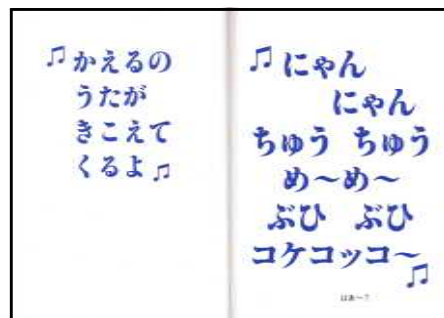 ♫かえるの
うたが
きこえて
くるよ♫
♫にゃん
にゃん
ちゅう ちゅう
め〜め〜
ぶひ ぶひ
コケコッコ〜♫
はあ〜?